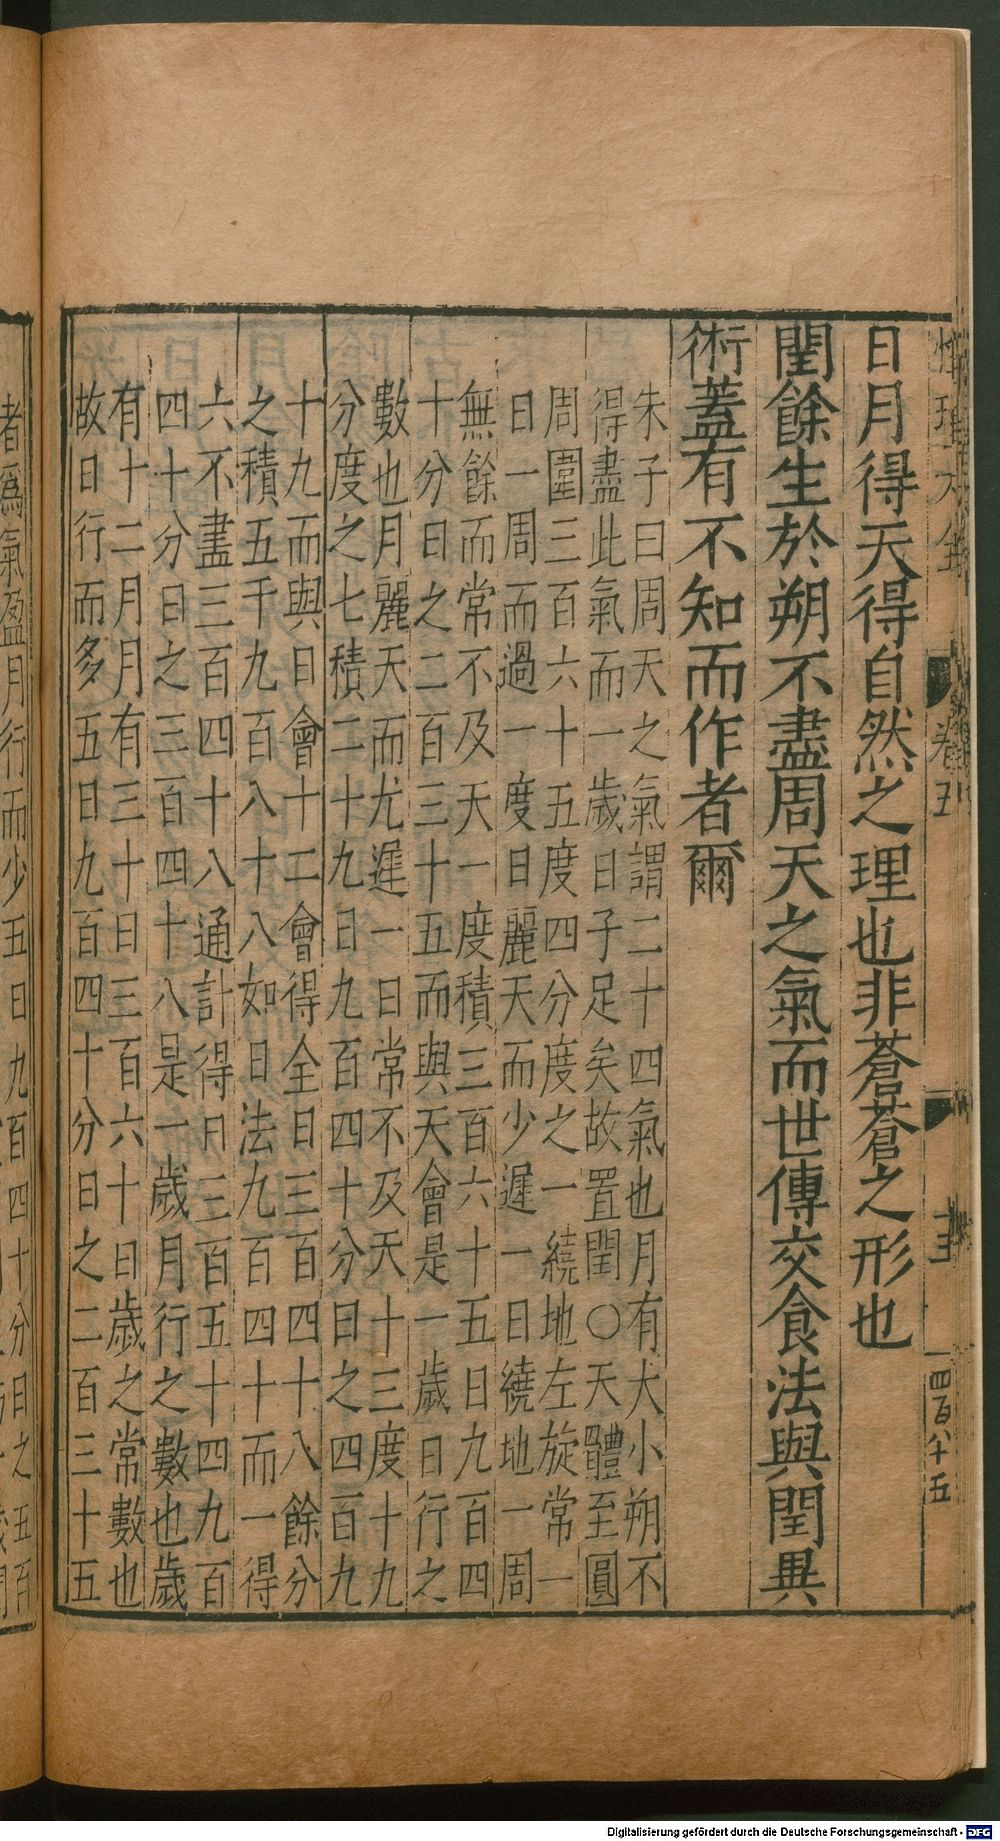 日月得天得自然之理也非蒼蒼之形也
閏餘生於朔不盡周天之氣而世傳交食法與閏異
術蓋有不知而作者爾
朱子曰周天之氣謂二十四氣也月有大小朔不
得盡此氣而一歲日子足矣故置閏○天體至圓
周圍三百六十五度四分度之一繞地左旋常一
日一周而過一度日麗天而少遲一日繞地一周
無餘而常不及天一度積三百六十五日九百四
十分日之二百三十五而與天會是一歲日行之
數也月麗天而尤遲一日常不及天十三度十九
分度之七積二十九日九百四十分日之四百九
十九而與日會十二會得全日三百四十八餘分
之積五千九百八十八如日法九百四十而一得
六不盡三百四十八通計得日三百五十四九百
四十分日之三百四十八是一歲月行之數也歲
有十二月月有三十日三百六十日歲之常數也
故日行而多五日九百四十分日之二百三十五
卷五
四百八十五
者爲氣盈月行而少五日九百四十分日之五百
Digitalisierung gefördert durch die Deutsche Forschungsgemeinschaft - DFG